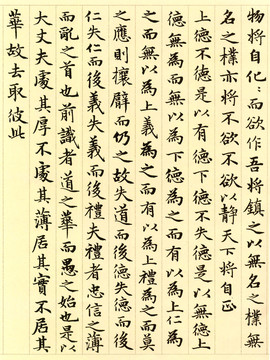 物將自化:而欲作吾將鎮之以無名之樸無
名之樸亦將不欲不欲以靜天下將自正
上德不德是以有德下德不失德是以無德上
德無為而無以為下德為之而有以為上仁為
之而無以為上義為之而有以為上禮為之而莫
之應則攘臂而仍之故失道而後德失德而後
仁失仁而後義失義而後禮夫禮者忠信之薄
而亂之首也前識者道之華而愚之始也是以
大丈夫處其厚不處其薄居其實不居其
華故去取彼此